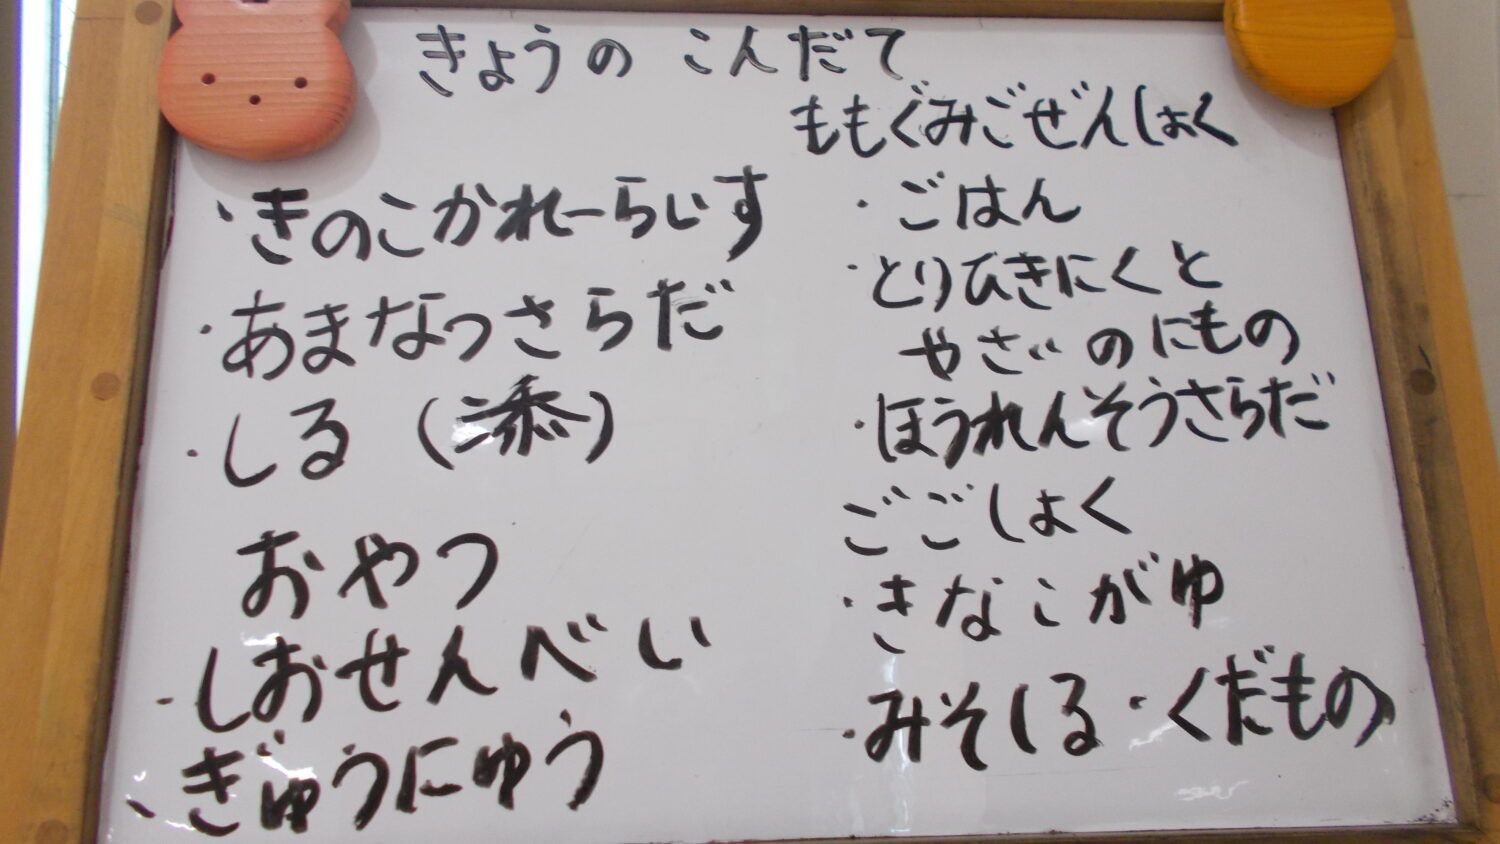 きょうの こんだて
・きのこかれーらいす
・あまなっさらだ
・しる (添)
おやつ
・しおせんべい
・ぎゅうにゅう
ももぐみごぜんしょく
・ごはん
・とりひきにくと
やさいのにもの
・ほうれんそうさらだ
ごごしょく
・きなこがゆ
・みそしる・くだもの